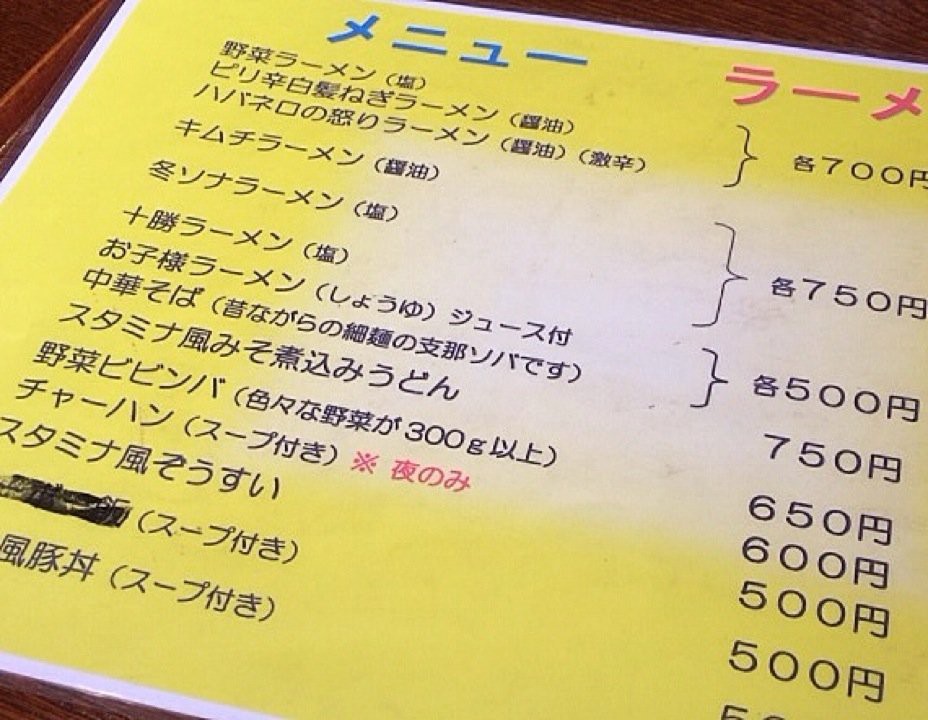 メニュー
ラーメ
野菜ラーメン（塩）
ピリ辛白髪ねぎラーメン（醤油）
ハバネロの怒りラーメン（醤油）（激辛） 各７００円
キムチラーメン（醤油）
冬ソナラーメン（塩） 各７５０円
十勝ラーメン（塩）
お子様ラーメン（しょうゆ）ジュース付
中華そば（昔ながらの細麺の支那ソバです） 各５００円
スタミナ風みそ煮込みうどん ７５０円
野菜ビビンバ（色々な野菜が３００ｇ以上） ６５０円
チャーハン（スープ付き）※ 夜のみ ６００円
スタミナ風ぞうすい ５００円
飯（スープ付き） ５００円
風豚丼（スープ付き）